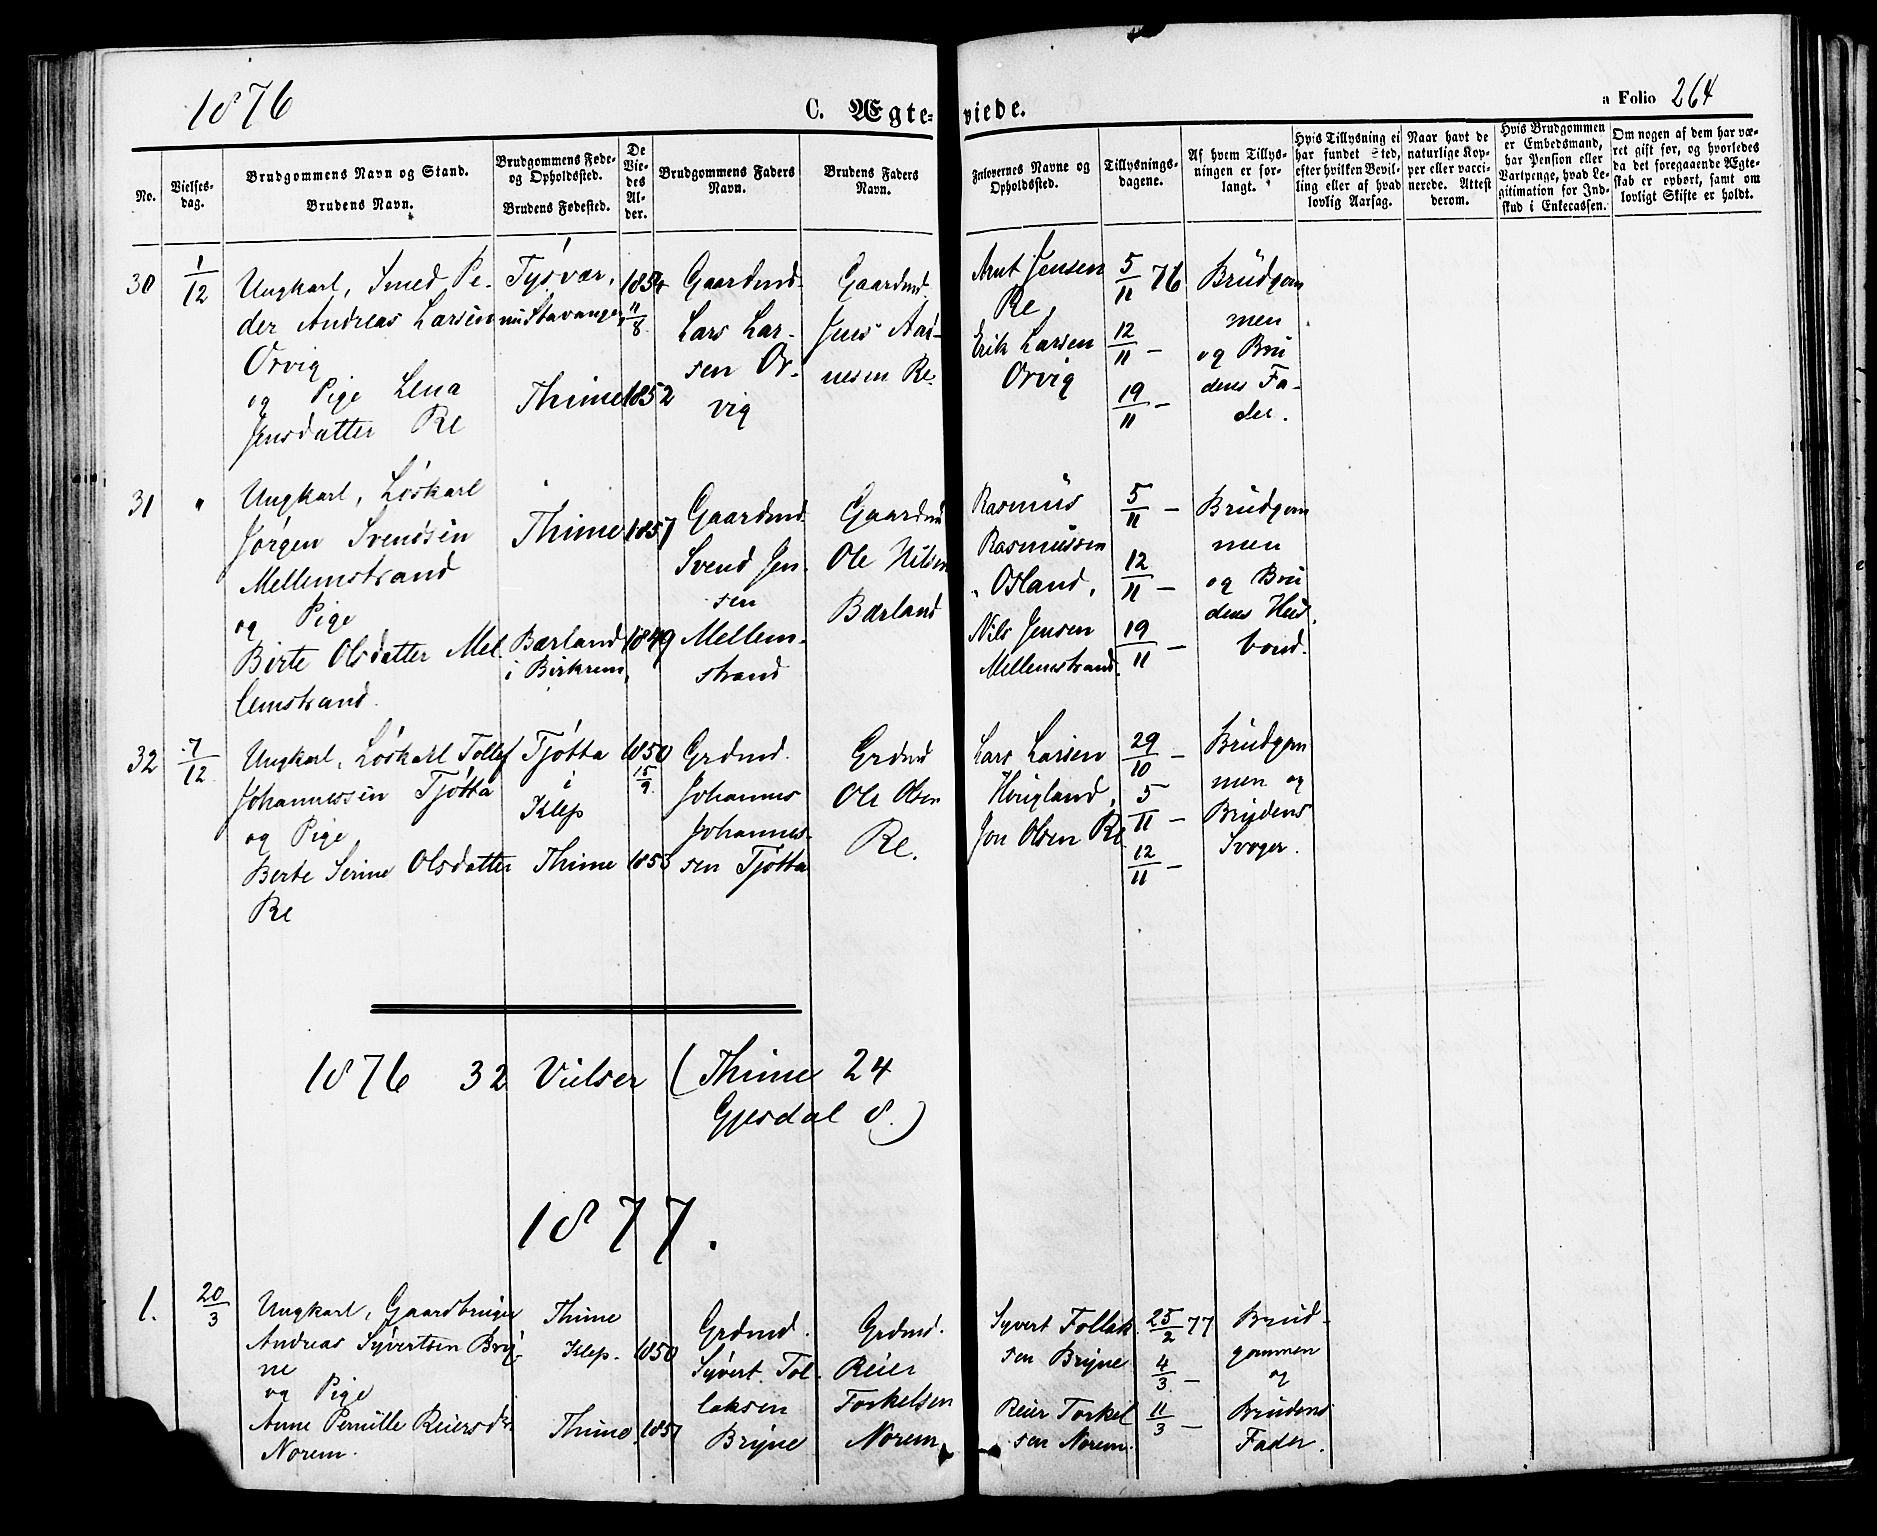 1876
C. Ægteviede.
a Folio 264
No.
Vielsesdag.
Brudgommens Navn og Stand.
Brudens Navn.
Brudgommens Føde- og Opholdssted.
Brudens Fødested.
De Viedes Alder.
Brudgommens Faders Navn.
Brudens Faders Navn.
Forlovernes Navne og Opholdssted.
Tillysningsdagene.
Af hvem Tillysningen er forlangt.
Hvis Tillysning ei har fundet Sted, efter hvilken Bevilling eller af hvad lovlig Aarsag.
Naar havt de naturlige Kopper eller vaccinerede. Attest derom.
Hvis Brudgommen er Embedsmand, har Pension eller Vartpenge, hvad Legitimation for Indskud i Enkecassen.
Om nogen af dem har været gift før, og hvorledes da det foregaaende Ægteskab er ophørt, samt om lovligt Skifte er holdt.
30
1/12
Ungkarl, Smed Pe-
der Andreas Larsen
Orvig
og Pige Lena
Jensdatter Re
Tysvær,
nu Stavanger,
Thime
1854
11/8
1852
Gaardmd.
Lars Lar-
sen Or-
vig
Gaardmd.
Jens Aad-
nesen Re.
Arnt Jensen
Re,
Erik Larsen
Orvig
5/11 76
12/11 -
19/11 -
Brudgom
men
og Bru
dens Fa-
der.
31
"
Ungkarl, Løskarl
Jørgen Svendsen
Mellemstrand
og Pige
Birte Olsdatter Mel
lemstrand.
Thime
Bærland
i Birkrem,
1851
1849
Gaardmd.
Svend Jen-
sen
Mellem-
strand
Gaardmd
Ole Nilsen
Bærland
Rasmus
Rasmussen
Osland,
Nils Jensen
Mellemstrand.
5/11 -
12/11 -
19/11 -
Brudgom
men
og Bru
dens Hus
bond.
32
7/12
Ungkarl, Løskarl Tollef
Johannessen Tjøtta
og Pige
Berte Serine Olsdatter
Re
Tjøtta
i
Klep
Thime
1850
15/9
1853
Grdmd.
Johannes
Johannes-
sen Tjøtta
Grdmd
Ole Olsen
Re.
Lars Larsen
Høigland,
Jon Olsen Re
29/10 -
5/11 -
12/11 -
Brudgom
men og
Brudens
Svoger.
1876 32 Vielser (Thime 24
Gjesdal 8.)
1877.
1.
20/3
Ungkarl, Gaardbruger
Andreas Syvertsen Bry-
ne
og Pige
Anne Pernille Reiersdtr.
Norem.
Thime
Klep.
Thime.
1850
1851
Grdmd.
Syvert Tol-
laksen
Bryne
Grdmd.
Reier
Torkelsen
Norem
Syvert Tollak
sen Bryne
Reier Torkel
sen Norem.
25/2 77
4/3 -
11/3 -
Brud-
gommen
og
Brudens
Fader.